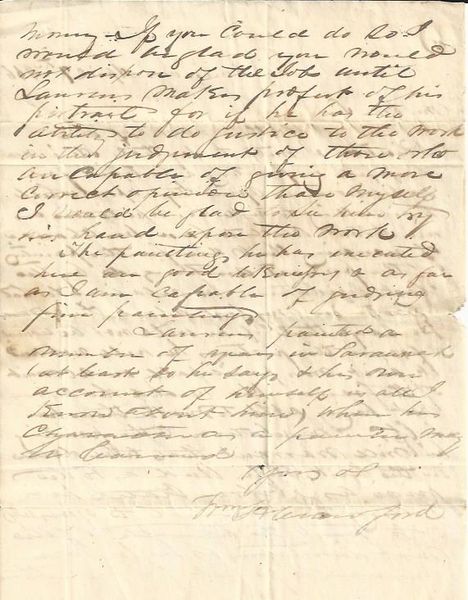 money - If you could do so I
would be glad you would
not dispose of the Job until
Laurens makes profert of his
portraits for if he has the
abilities to do justice to the work
in the judgment of those who
are capable of giving a more
correct opinion than myself
I would be glad to see him try
his hand upon the work
The paintings he has executed
here are good likenesses & as far
as I am capable of judging
fine paintings
Laurens painted a
number of years in Savannah
(at least so he says & his own
account of himself is all I
know about him) where his
character as a painter may
be learned
Yours &c